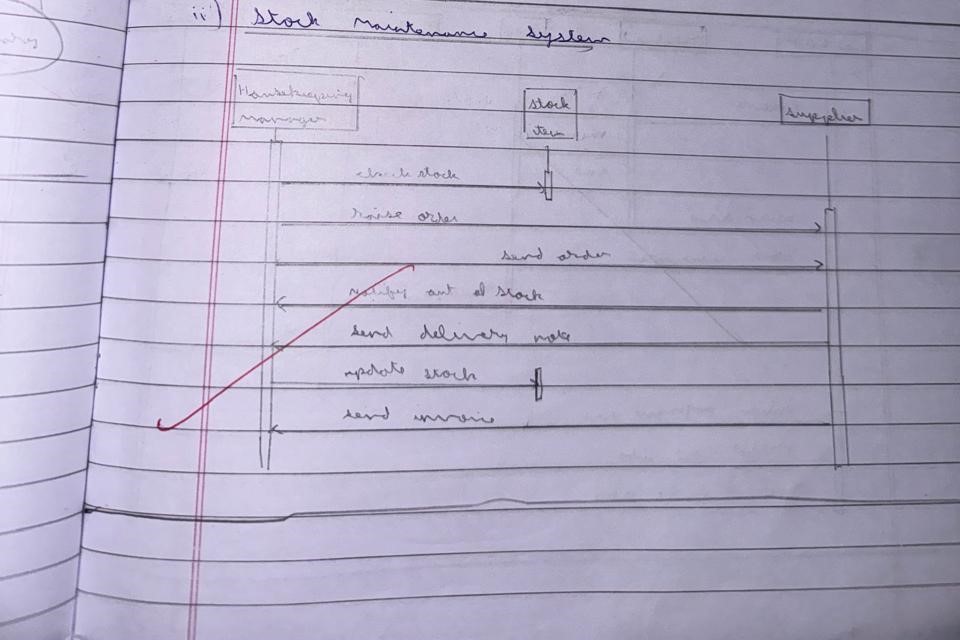 ii) Stock maintenance system
Housekeeping
manager
stock
item
supplier
check stock
Raise order
send order
notify out of stock
send delivery note
update stock
send invoice